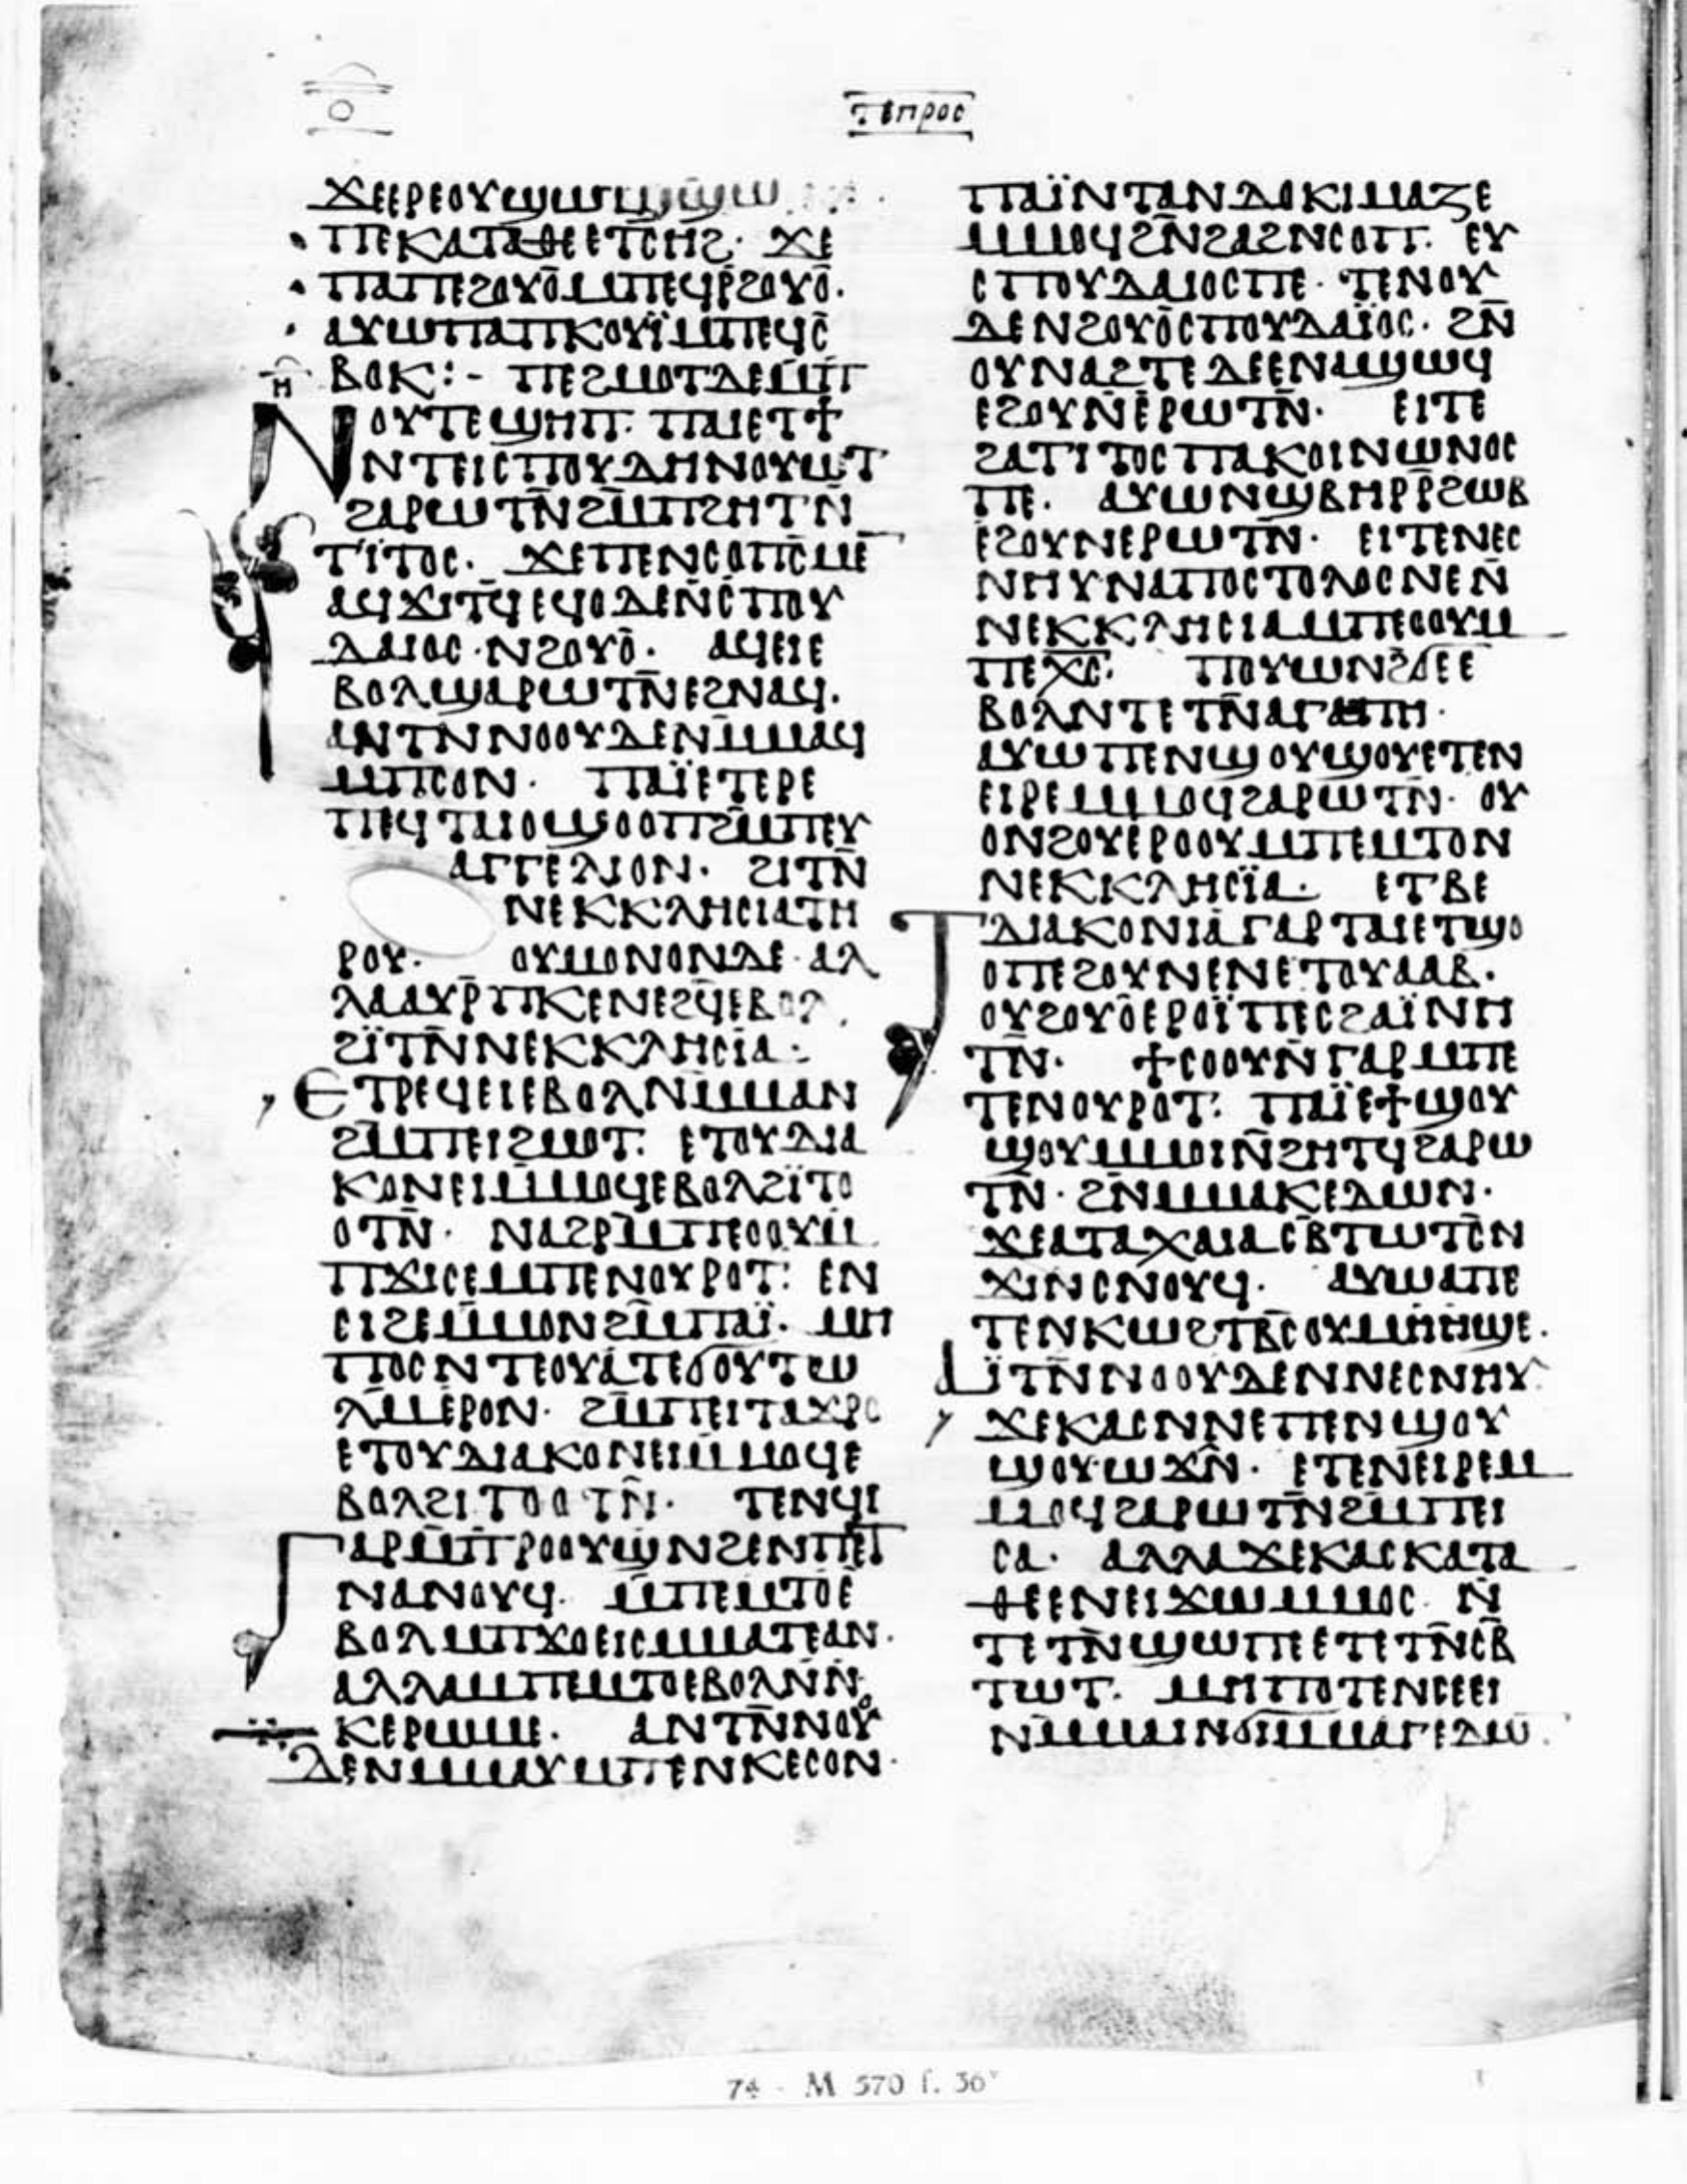 ⲟ̄
ⲧⲉⲡⲣⲟⲥ
ϫⲉⲉⲣⲉⲟⲩϣⲱϣϣⲱ
ⲡⲉⲕⲁⲧⲁⲑⲉⲉⲧⲥⲏϩ· ϫⲉ
ⲡⲁⲡⲉϩⲟⲩⲟ̄ⲙⲡⲉϥⲣ̄ϩⲟⲩⲟ̄·
ⲁⲩⲱⲡⲁⲡⲕⲟⲩⲓ̈ⲙⲡⲉϥⲥ̄
ⲃⲟⲕ:- ⲡⲉϩⲙⲟⲧⲇⲉⲙ̄ⲡ
ⲏ̄
ⲛⲟⲩⲧⲉϣⲏⲡ· ⲡⲁⲓⲉⲧϯ
ⲛⲧⲉⲓⲥⲡⲟⲩⲇⲏⲛⲟⲩⲱⲧ
ϩⲁⲣⲱⲧⲛ̄ϩⲙ̄ⲡϩⲏⲧⲛ̄
ⲧⲓⲧⲟⲥ· ϫⲉⲡⲉⲛⲥⲟⲡⲥ̄ⲙⲉ
ⲁϥϫⲓⲧϥ̄ⲉϥⲟⲇⲉⲛ̄ⲥⲡⲟⲩ
ⲇⲁⲓⲟⲥ·ⲛϩⲟⲩⲟ̄· ⲁϥⲉⲓⲉ
ⲃⲟⲗϣⲁⲣⲱⲧⲛ̄ⲉϩⲛⲁϥ·
ⲁⲛⲧⲛⲛⲟⲟⲩⲇⲉⲛⲙ̄ⲙⲁϥ
ⲙⲡⲥⲟⲛ· ⲡⲁⲓ̈ⲉⲧⲉⲣⲉ
ⲡⲉϥⲧⲁⲓⲟϣⲟⲟⲡϩⲙ̄ⲡⲉⲩ
ⲁⲅⲅⲉⲗⲓⲟⲛ· ϩⲓⲧⲛ̄
ⲛⲉⲕⲕⲗⲏⲥⲓⲁⲧⲏ
ⲣⲟⲩ· ⲟⲩⲙⲟⲛⲟⲛⲇⲉ·ⲁⲗ
ⲗⲁⲁⲩⲣ̄ⲡⲕⲉⲛⲉϩϥⲉⲃⲟⲗ
ϩⲓ̈ⲧⲛ̄ⲛⲉⲕⲕⲗⲏⲥⲓⲁ·
ⲉⲧⲣⲉϥⲉⲓⲉⲃⲟⲗⲛⲙ̄ⲙⲁⲛ
ϩⲙ̄ⲡⲉⲓϩⲙⲟⲧ· ⲉⲧⲟⲩⲇⲓⲁ
ⲕⲟⲛⲉⲓⲙ̄ⲙⲟϥⲉⲃⲟⲗϩⲓ̈ⲧⲟ
ⲟⲧⲛ̄· ⲛⲁϩⲣⲙ̄ⲡⲉⲟⲟⲩⲙ̄
ⲡϫⲓⲥⲉⲙⲡⲉⲛⲟⲩⲣⲟⲧ: ⲉⲛ
ⲥⲓϩⲉⲙ̄ⲙⲟⲛϩⲙ̄ⲡⲁⲓ̈· ⲙⲏ
ⲡⲟⲥⲛⲧⲉⲟⲩⲁⲧⲉϭⲟⲩⲧⲱ
ⲗⲙⲉⲣⲟⲛ· ϩⲙ̄ⲡⲉⲓⲧⲁϫⲣⲟ
ⲉⲧⲟⲩⲇⲓⲁⲕⲟⲛⲉⲓⲙ̄ⲙⲟϥⲉ
ⲃⲟⲗϩⲓⲧⲟⲟⲧⲛ̄· ⲧⲉⲛϥⲓ
ⲅⲁⲣⲙ̄ⲡⲣⲟⲟⲩϣⲛϩⲉⲛⲡⲉⲧ
ⲛⲁⲛⲟⲩϥ· ⲙ̄ⲡⲉⲙⲧⲟⲉ̄
ⲃⲟⲗⲙⲡϫⲟⲉⲓⲥⲙⲙⲁⲧⲉⲁⲛ·
ⲁⲗⲗⲁⲙⲡⲉⲙⲧⲟⲉⲃⲟⲗⲛ̄ⲛ̄
ⲕⲉⲣⲱⲙⲉ· ⲁⲛⲧⲛ̄ⲛⲟⲟⲩ
ⲇⲉⲛⲙⲙⲁⲩⲙⲡⲉⲛⲕⲉⲥⲟⲛ·
ⲡⲁⲓ̈ⲛⲧⲁⲛⲇⲟⲕⲓⲙⲁⲍⲉ
ⲙⲙⲟϥϩⲛ̄ϩⲁϩⲛⲥⲟⲡ· ⲉⲩ
ⲥⲡⲟⲩⲇⲁⲓⲟⲥⲡⲉ· ⲧⲉⲛⲟⲩ
ⲇⲉⲛϩⲟⲩⲟ̄ⲥⲡⲟⲩⲇⲁⲓ̈ⲟⲥ· ϩⲛ̄
ⲟⲩⲛⲁϩⲧⲉⲇⲉⲉⲛⲁϣⲱϥ
ⲉϩⲟⲩⲛ̄ⲉⲣⲱⲧⲛ̄· ⲉⲓⲧⲉ
ϩⲁⲧⲓⲧⲟⲥⲡⲁⲕⲟⲓⲛⲱⲛⲟⲥ
ⲡⲉ· ⲁⲩⲱⲛϣⲃⲏⲣⲣ̄ϩⲱⲃ
ⲉϩⲟⲩⲛⲉⲣⲱⲧⲛ̄· ⲉⲓⲧⲉⲛⲉⲥ
ⲛⲏⲩⲛⲁⲡⲟⲥⲧⲟⲗⲟⲥⲛⲉⲛ̄
ⲛⲉⲕⲕⲗⲏⲥⲓⲁⲙⲡⲉⲟⲟⲩⲙ
ⲡⲉⲭ̄ⲥ̄· ⲡⲟⲩⲱⲛϩϭⲉⲉ̄
ⲃⲟⲗⲛⲧⲉⲧⲛ̄ⲁⲅⲁⲡⲏ·
ⲁⲩⲱⲡⲉⲛϣⲟⲩϣⲟⲩⲉⲧⲉⲛ
ⲉⲓⲣⲉⲙⲙⲟϥϩⲁⲣⲱⲧⲛ̄· ⲟⲩ
ⲟⲛϩⲟⲩⲉⲣⲟⲟⲩⲙⲡⲉⲙⲧⲟⲛ
ⲛⲉⲕⲕⲗⲏⲥⲓ̈ⲁ· ⲉⲧⲃⲉ
ⲧⲇⲓⲁⲕⲟⲛⲓⲁⲅⲁⲣⲧⲁⲓⲉⲧϣⲟ
ⲟⲡⲉϩⲟⲩⲛⲉⲛⲉⲧⲟⲩⲁⲁⲃ·
ⲟⲩϩⲟⲩⲟ̄ⲉⲣⲟⲓ̈ⲡⲉⲥϩⲁⲓ̈ⲛⲏ
ⲧⲛ̄· ϯⲥⲟⲟⲩⲛ̄ⲅⲁⲣⲙⲡⲉ
ⲧⲉⲛⲟⲩⲣⲟⲧ: ⲡⲁⲓ̈ⲉϯϣⲟⲩ
ϣⲟⲩⲙⲙⲟⲓⲛ̄ϩⲏⲧϥϩⲁⲣⲱ
ⲧⲛ̄· ϩⲛ̄ⲙⲙⲁⲕⲉⲇⲱⲛ·
ϫⲉⲁⲧⲁⲭⲁⲓⲁⲥⲃ̄ⲧⲱⲧⲥ̄ⲛ
ϫⲓⲛⲥⲛⲟⲩϥ· ⲁⲩⲱⲁⲡⲉ
ⲧⲉⲛⲕⲱϩⲧⲃ̄ⲥⲟⲩⲙⲏⲏϣⲉ·
ⲁⲓ̈ⲧⲛ̄ⲛⲟⲟⲩⲇⲉⲛⲛⲉⲥⲛⲏⲩ·
ϫⲉⲕⲁⲥⲛⲛⲉⲡⲉⲛϣⲟⲩ
ϣⲟⲩⲱϫⲛ̄· ⲉⲧⲉⲛⲉⲓⲣⲉⲙ
ⲙⲟϥϩⲁⲣⲱⲧⲛ̄ϩⲙ̄ⲡⲉⲓ
ⲥⲁ· ⲁⲗⲗⲁϫⲉⲕⲁⲥⲕⲁⲧⲁ
ⲑⲉⲉⲛⲉⲓϫⲱⲙⲙⲟⲥ· ⲛ̄
ⲧⲉⲧⲛ̄ϣⲱⲡⲉⲉⲧⲉⲧⲛ̄ⲥⲃ̄
ⲧⲱⲧ· ⲙⲏⲡⲟⲧⲉⲛⲥⲉⲉⲓ
ⲛⲙⲙⲁⲓⲛϭⲓⲙⲙⲁⲕⲉⲇⲱ·
74 - M 570 f. 36ᵛ